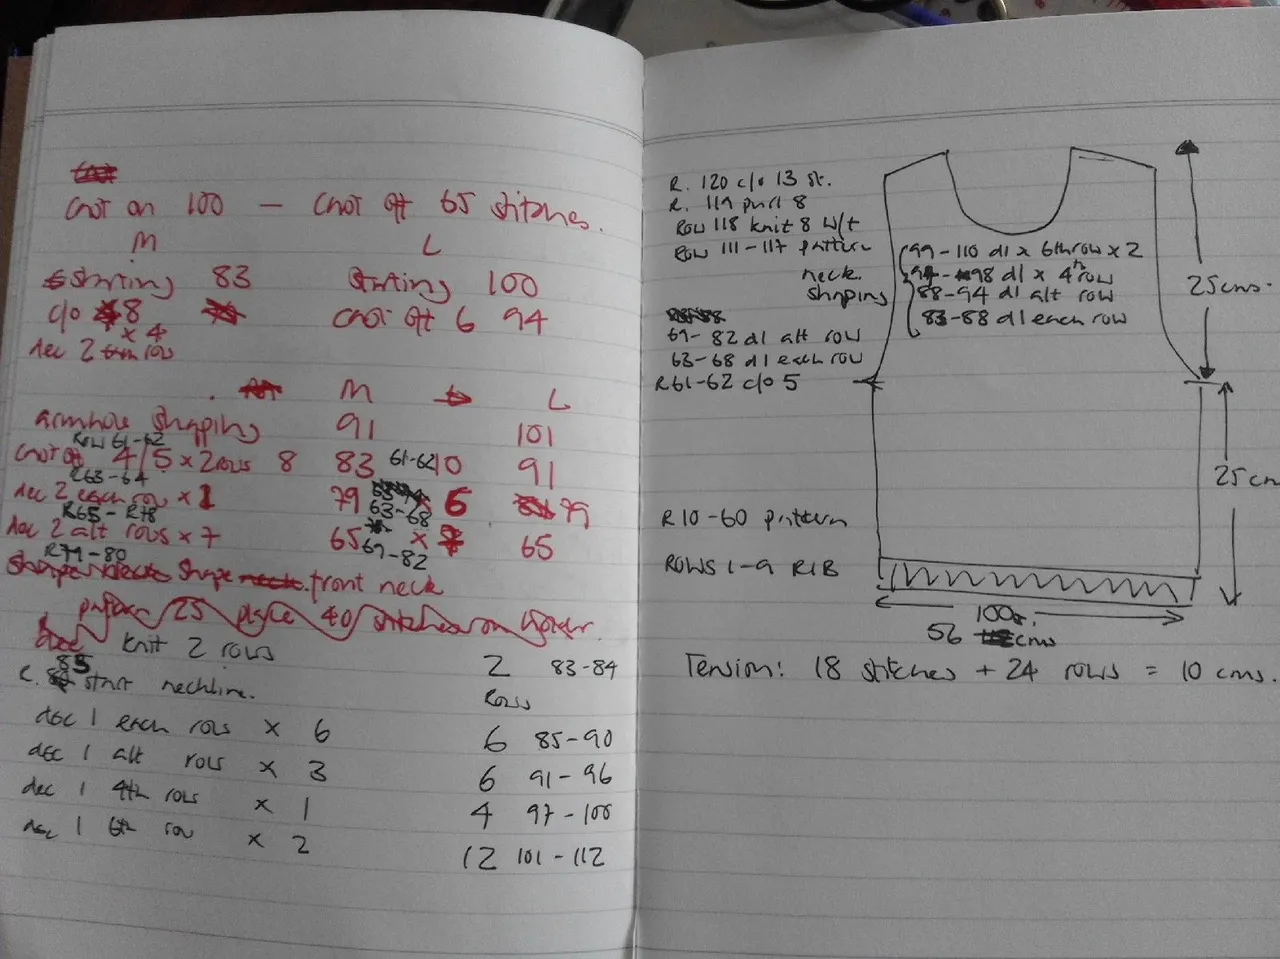 Cast on 100 — Cast off 65 stitches.
M L
Starting 83 Starting 100
c/o 8 Cast off 6 94
x 4
dec 2 row
M L
armhole shaping 91 101
Row 61-62
Cast off 4/5 x 2 rows 8 83 61-62 10 91
R63-64
dec 2 each row x 1 79 63-68 x 6 79
R65 - R78
dec 2 alt rows x 7 65 69-82 x 7 65
R79-80
Shape front neck
pattern 25 place 40 stitches on holder.
knit 2 rows 2 83-84
R. 85 start neckline. Rows
dec 1 each rows x 6 6 85-90
dec 1 alt rows x 3 6 91-96
dec 1 4th rows x 1 4 97-100
dec 1 6th row x 2 12 101-112
R. 120 c/o 13 st.
R. 119 purl 8
Row 118 knit 8 w/t
Row 111-117 pattern
neck
shaping
99-110 d1 x 6th row x 2
98 d1 x 4th row
88-94 d1 alt row
83-88 d1 each row
69-82 d1 alt row
63-68 d1 each row
R61-62 c/o 5
25cms.
25cm
R10-60 pattern
ROWS 1-9 RIB
100
56 cms
Tension: 18 stitches + 24 rows = 10 cms.